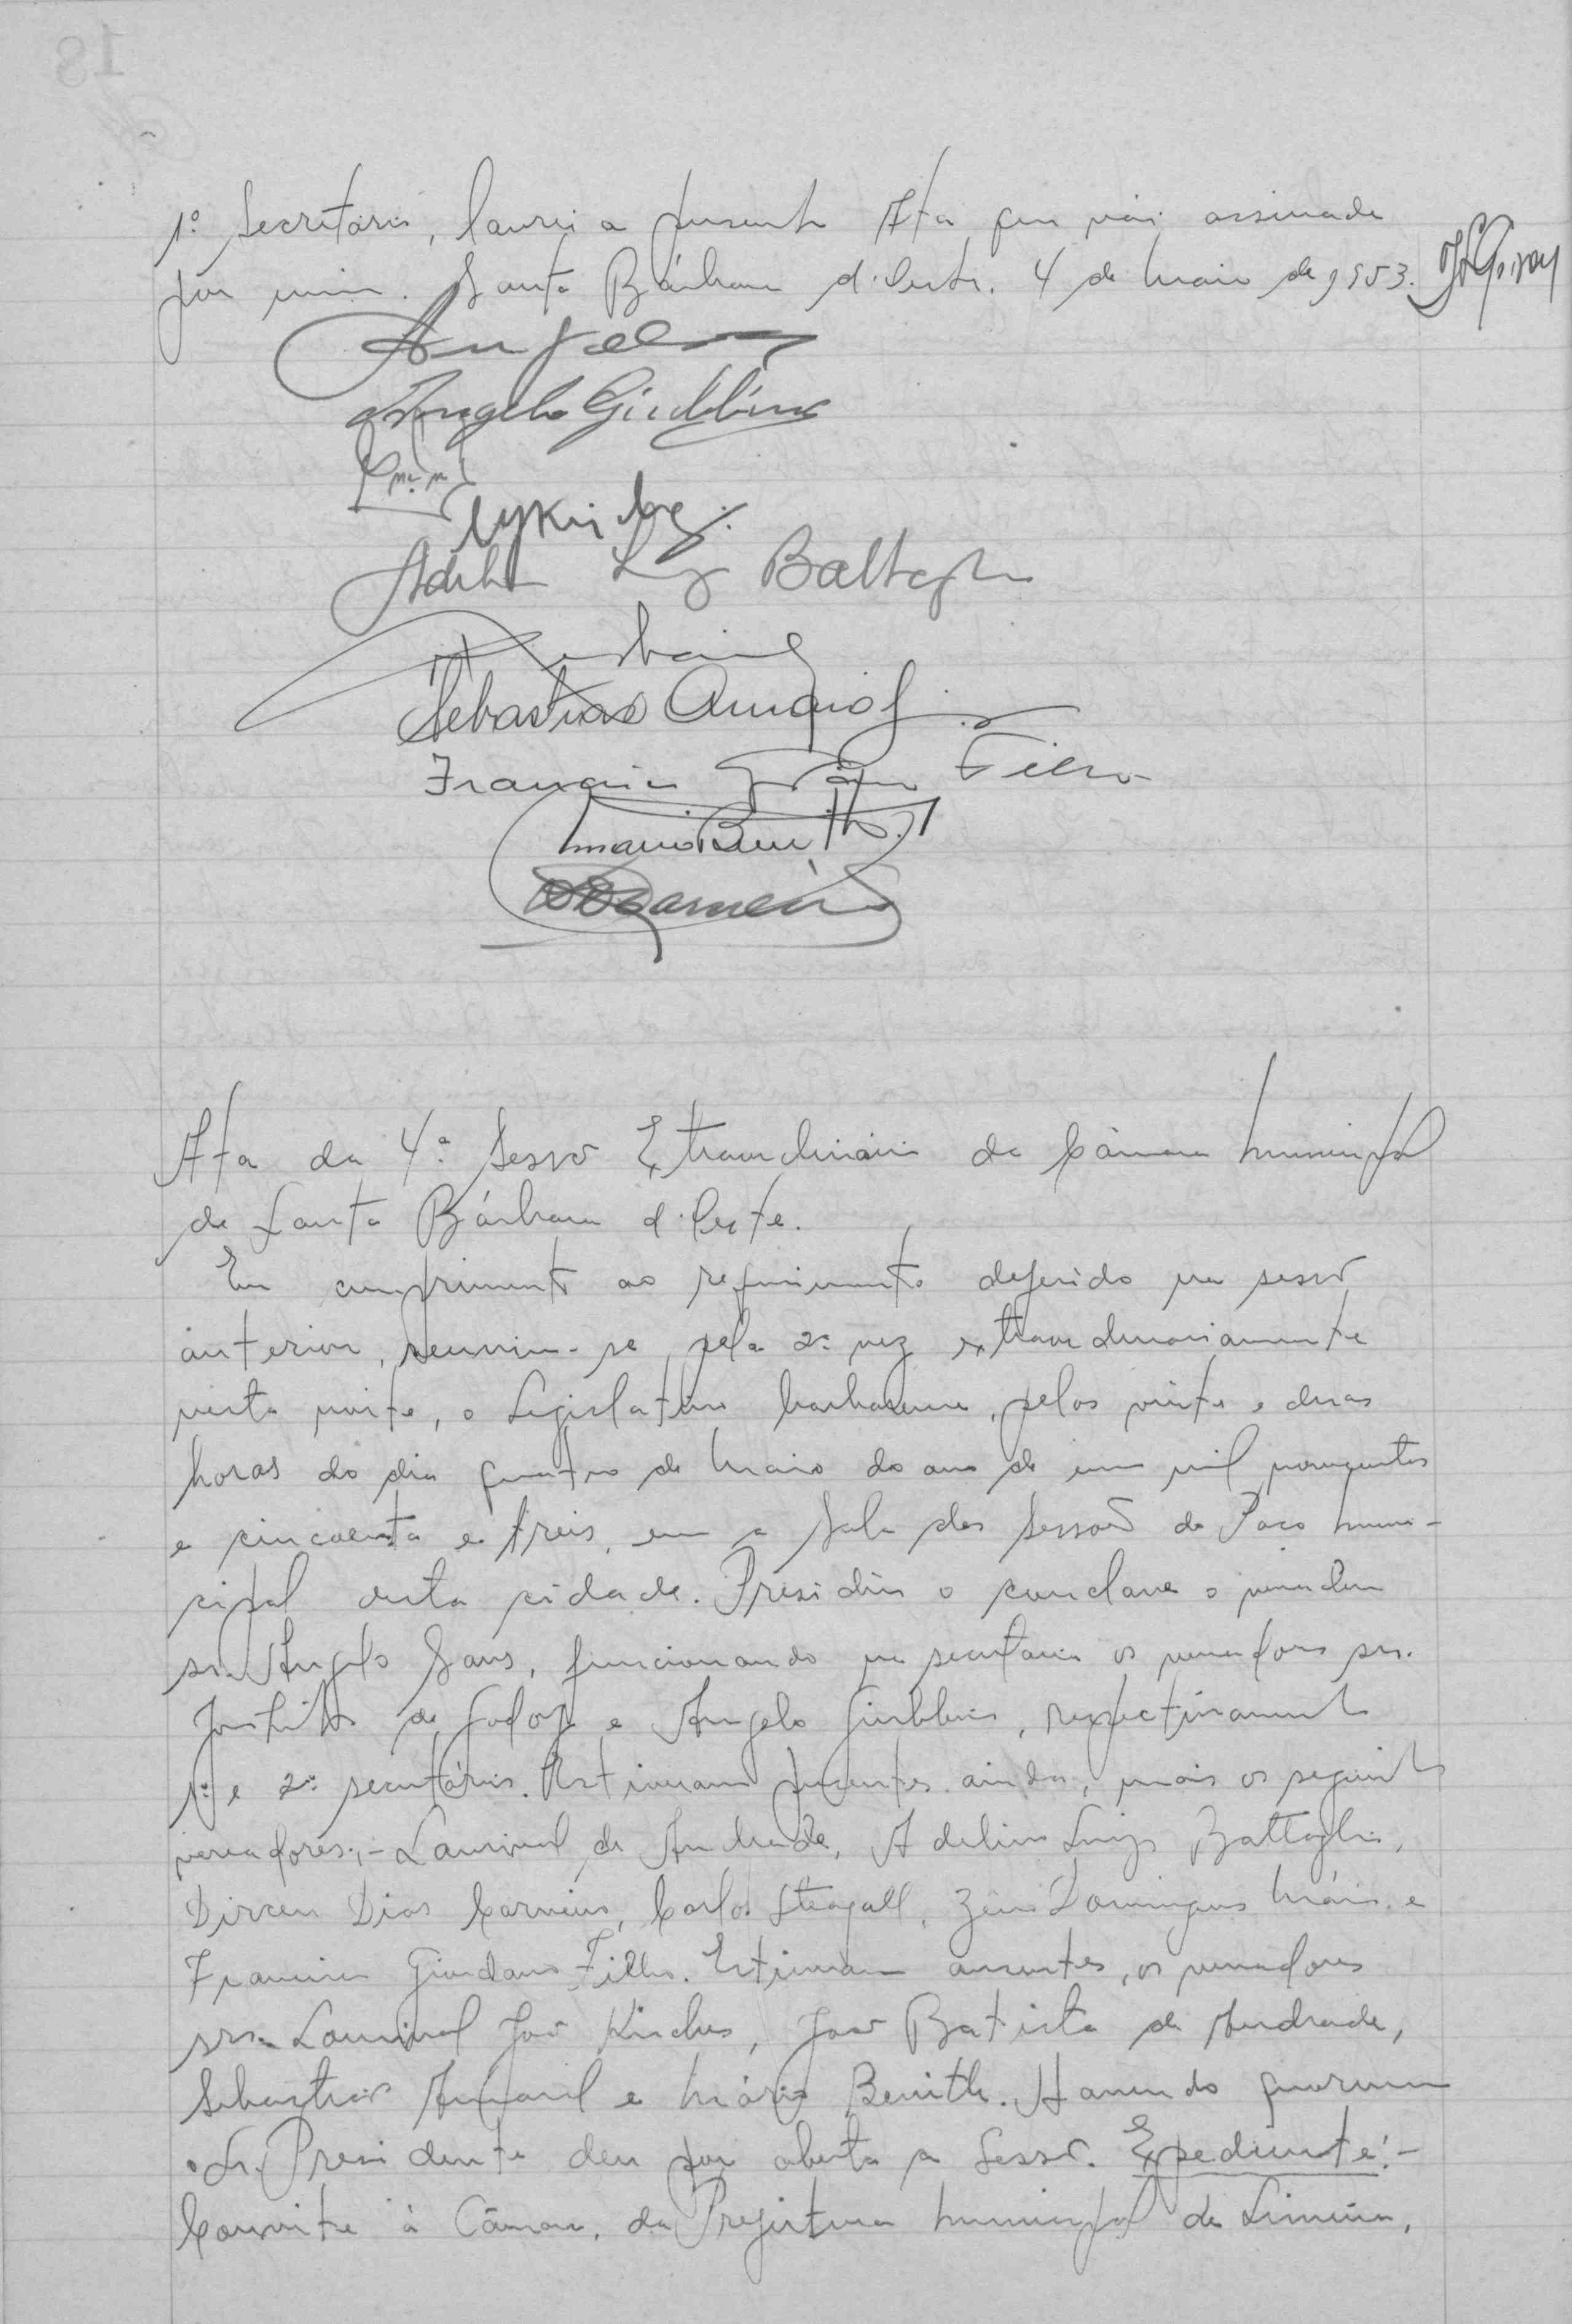 1º Secretário, lavrei a presente Ata que vai assinada
por mim. Santa Bárbara d'Oeste. 4 de Maio de 1953.
Angelo Giubbina
Battaglia
Sebastião Amaral
Francisco Filho
Mario Benitho
Ata da 4ª Sessão Extraordinária da Câmara Municipal
de Santa Bárbara d'Oeste.
Em cumprimento ao requerimento deferido na sessão
anterior, reuniu-se pela 2ª vez extraordinariamente
nesta noite, o Legislativo barbarense, pelas vinte e duas
horas do dia quatro de Maio do ano de um mil novecentos
e cincoenta e treis, em a Sala das Sessões do Paço Muni-
cipal desta cidade. Presidiu o conclave o vereador
sr. Angelo Sans, funcionando na secretaria os vereadores srs.
de Godoy e Angelo Giubbina, respectivamente
1º e 2º secretários. Estiveram presentes ainda, mais os seguintes
vereadores:- Lourival de Andrade, Adelino Luiz Battaglia,
Dirceu Dias Carneiro, Carlos Steagall, Zeno Domingues Máia e
Francisco Giordano Filho. Estiveram ausentes, os vereadores
srs. Lourival José Kirches, João Batista de Andrade,
Sebastião Amaral e Mário Benith. Havendo quorum
o Sr. Presidente deu por aberta a Sessão. Expediente:-
Convite à Câmara, da Prefeitura Municipal de Limeira,